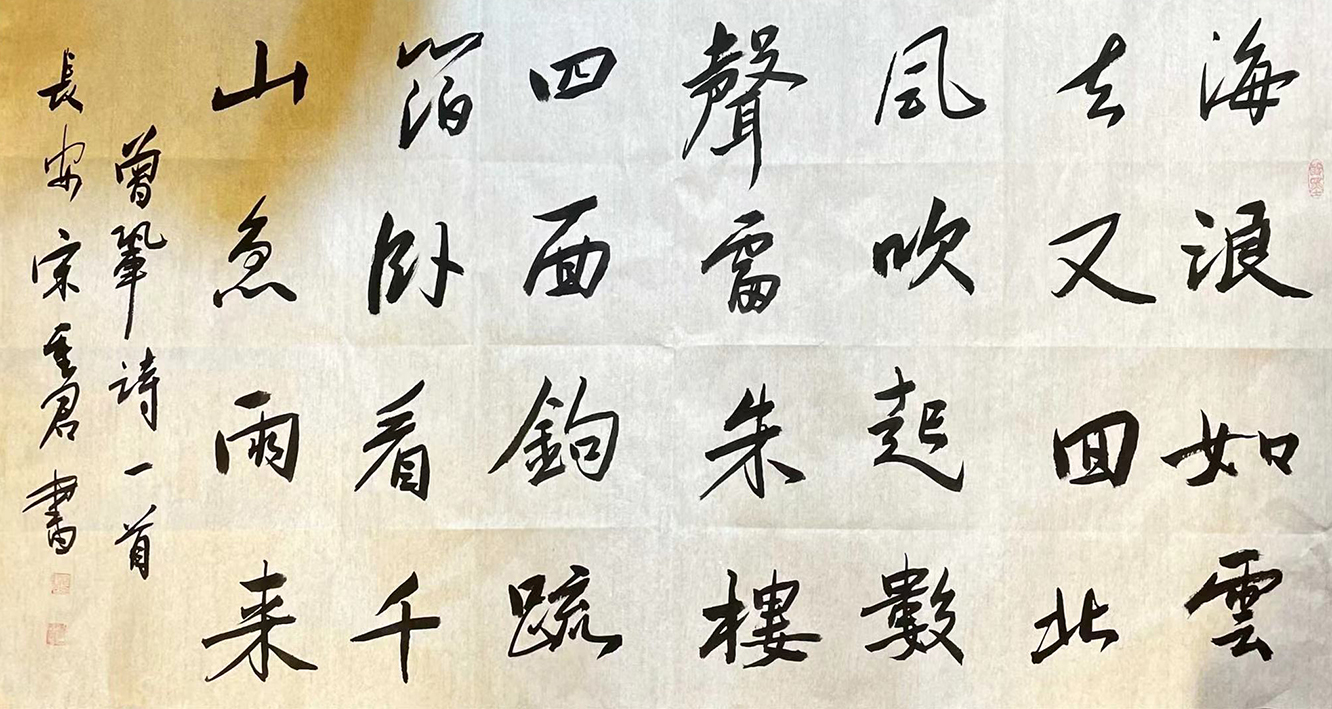 海浪如雲
去又回北
風吹起數
聲雷朱樓
四面鉤疏
箔卧看千
山急雨来
曾鞏詩一首
長安宋重君書